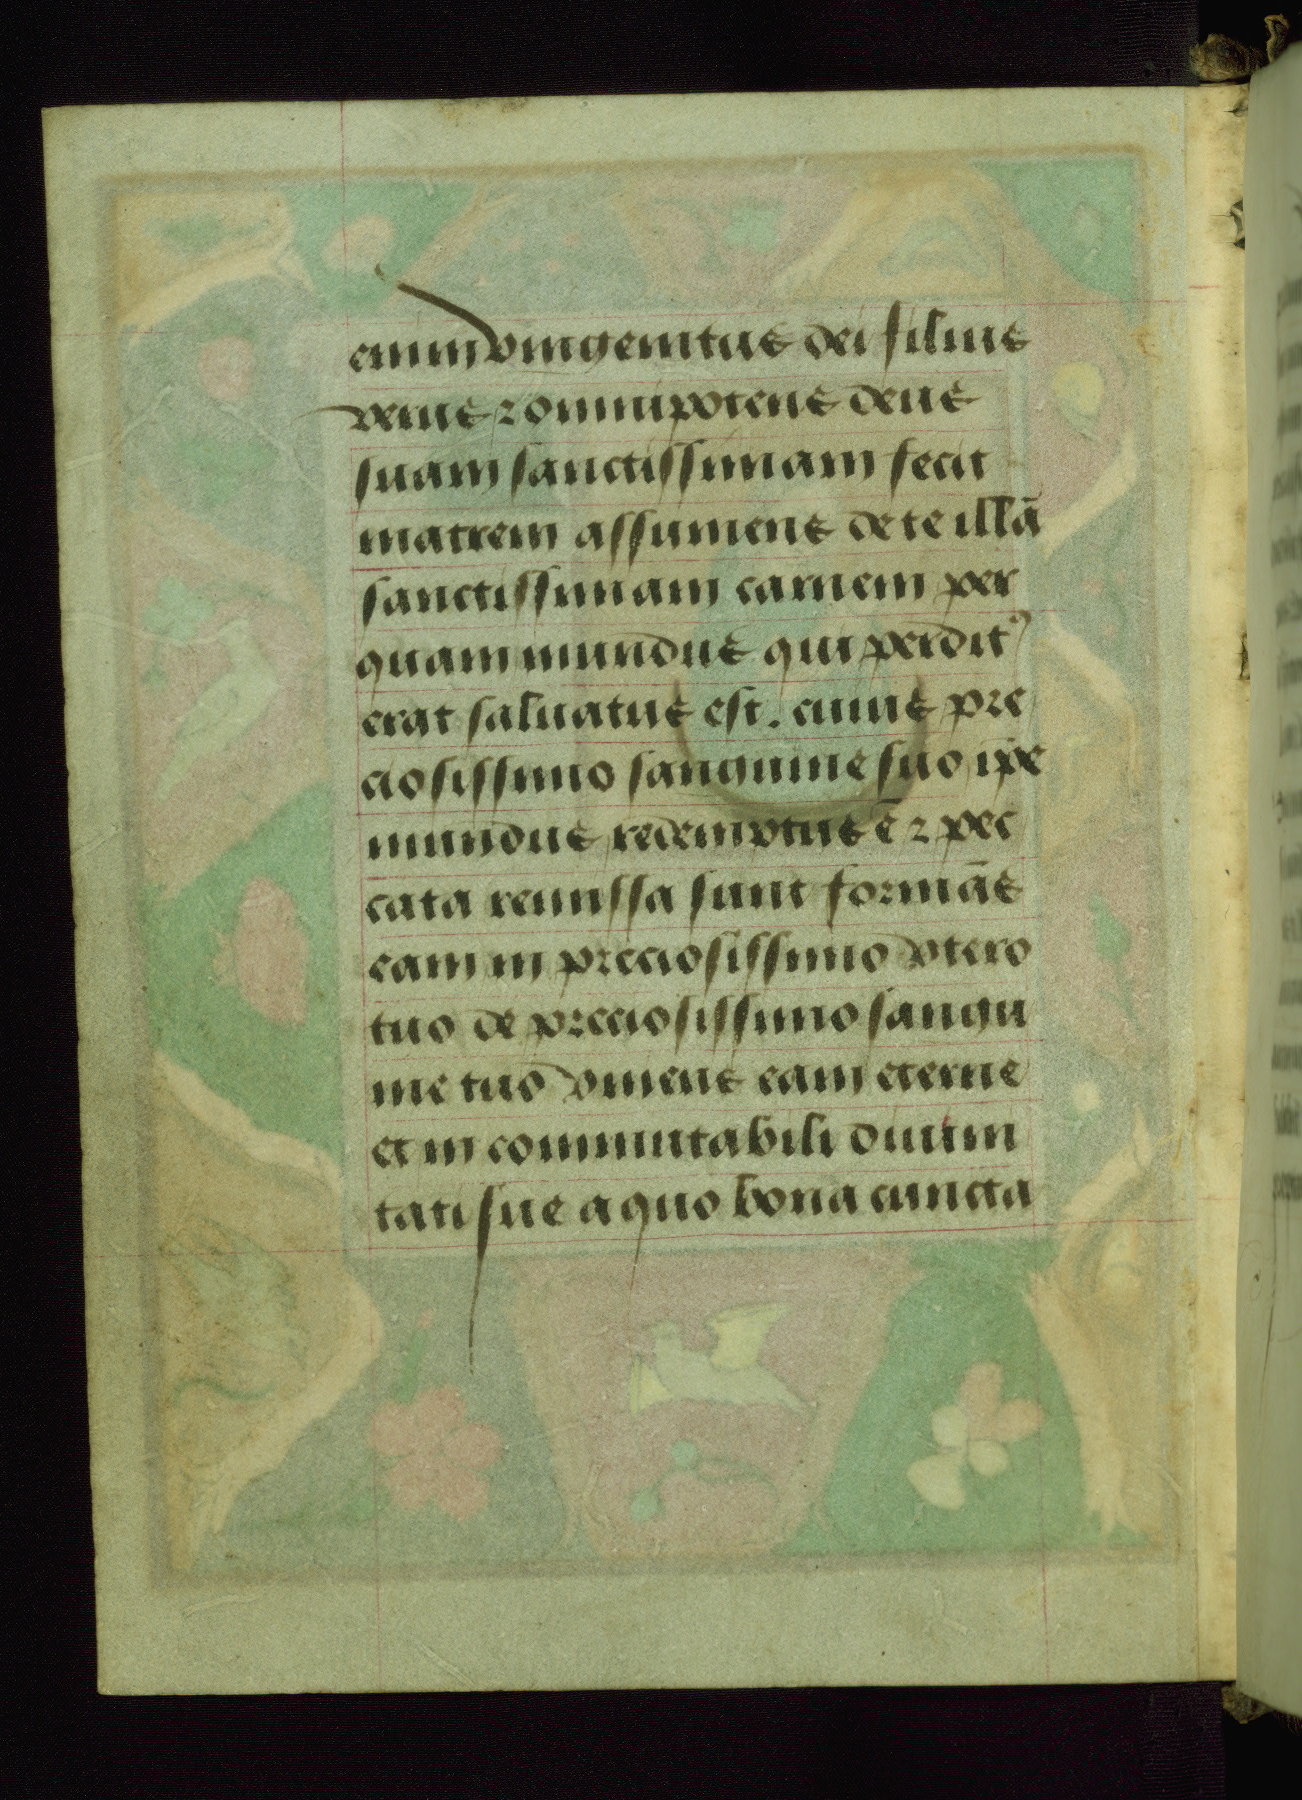 enim vnigenitus dei filius
verus ⁊ omnipotens deus
suam sanctissimam fecit
matrem assumens de te illā
sanctissimam carnem per
quam mundus qui perditꝰ
erat saluatus est. cuius pre
ciosissimo sanguine suo ip̄e
mundus redemptus ē ⁊ pec
cata remissa sunt formās
eam in preciosissimo vtero
tuo de preciosissimo sangu
ine tuo vniens eam eterne
et in commutabili diuini
tati sue a quo bona cuncta